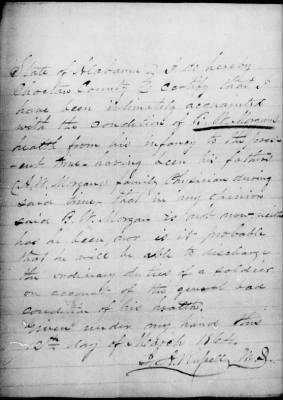 State of Alabama } I do hereby
Choctaw County } certify that I
have been intimately acquainted
with the condition of B. W. Morgans
health from his infancy to the pres-
ent time having been his father's
Morgans family Physician during
said time, that in my opinion
said B. W. Morgan is not now neither
has he been, nor is it probable
that he will be able to discharge
the ordinary duties of a soldier
on account of the general bad
condition of his health.
Given under my hand this
12th day of March 1864.
M.D.